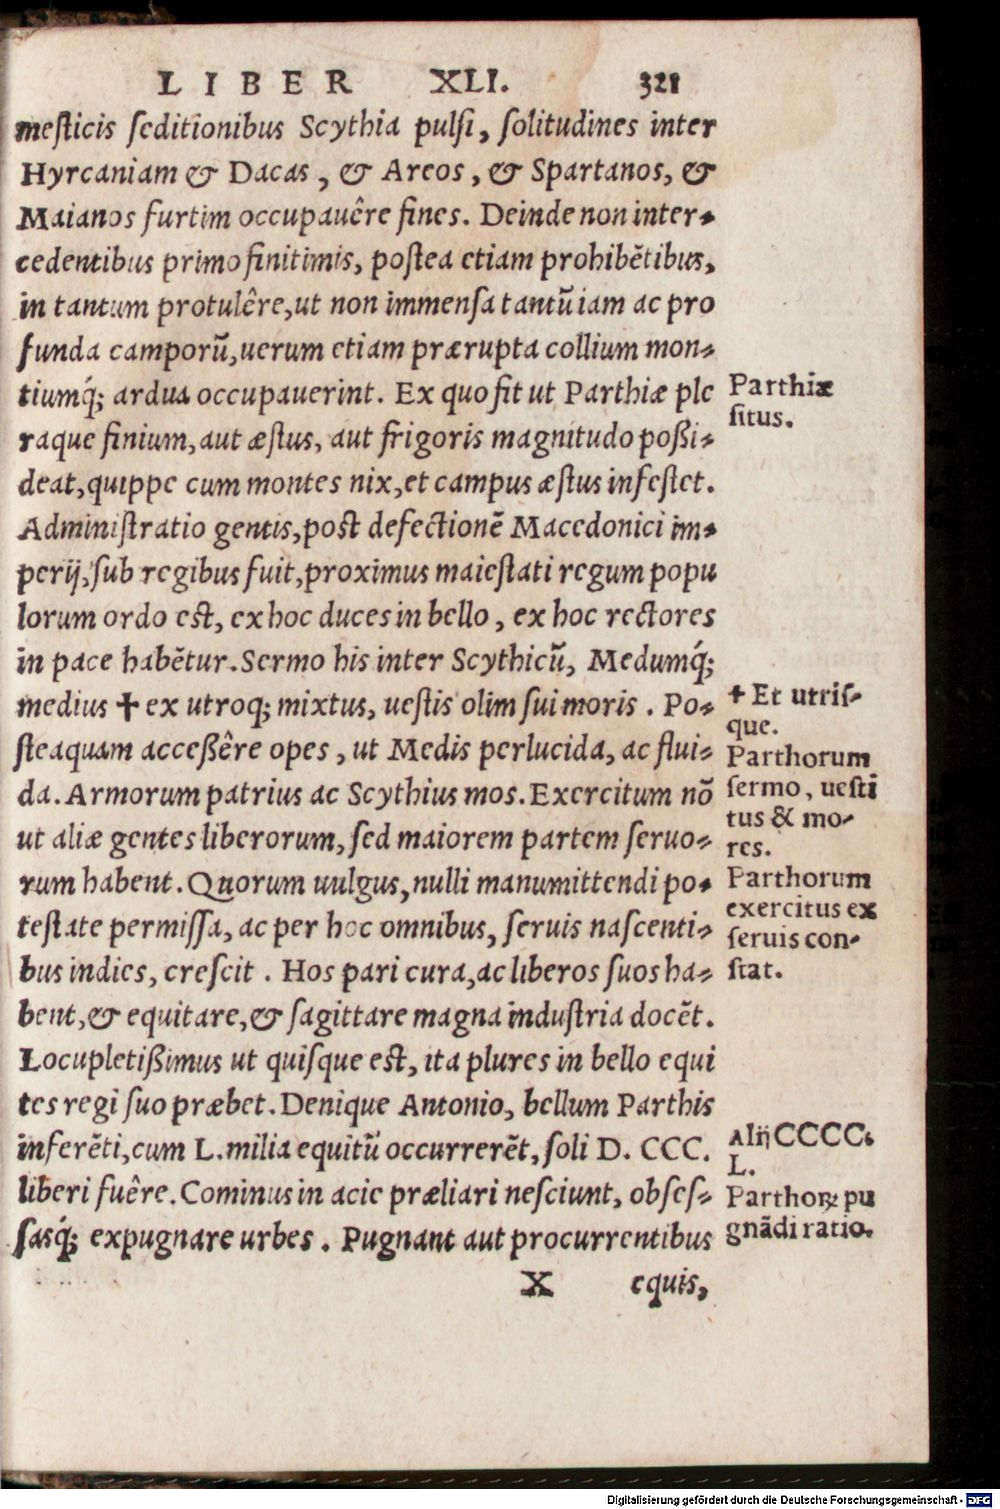 LIBER XLI. 321
mesticis seditionibus Scythia pulsi, solitudines inter
Hyrcaniam & Dacas, & Areos, & Spartanos, &
Maianos furtim occupauêre fines. Deinde non inter-
cedentibus primo finitimis, postea etiam prohibẽtibus,
in tantum protulêre, ut non immensa tantũ iam ac pro
funda camporũ, uerum etiam prærupta collium mon-
tiumq́; ardua occupauerint. Ex quo fit ut Parthiæ ple
raque finium, aut æstus, aut frigoris magnitudo poßi-
deat, quippe cum montes nix, et campus æstus infestet.
Administratio gentis, post defectionẽ Macedonici im-
perij, sub regibus fuit, proximus maiestati regum popu
lorum ordo est, ex hoc duces in bello, ex hoc rectores
in pace habẽtur. Sermo his inter Scythicũ, Medumq́;
medius ✝ ex utroq; mixtus, uestis olim sui moris. Po-
steaquam acceßêre opes, ut Medis perlucida, ac flui-
da. Armorum patrius ac Scythius mos. Exercitum nõ
ut aliæ gentes liberorum, sed maiorem partem seruo-
rum habent. Quorum uulgus, nulli manumittendi po-
testate permissa, ac per hoc omnibus, seruis nascenti-
bus indies, crescit. Hos pari cura, ac liberos suos ha-
bent, & equitare, & sagittare magna industria docẽt.
Locupletißimus ut quisque est, ita plures in bello equi
tes regi suo præbet. Denique Antonio, bellum Parthis
inferẽti, cum L. milia equitũ occurrerẽt, soli D. CCC.
liberi fuêre. Cominus in acie præliari nesciunt, obses-
sasq́; expugnare urbes. Pugnant aut procurrentibus
X equis,
Parthiæ
situs.
✝ Et utris-
que.
Parthorum
sermo, uesti
tus & mo-
res.
Parthorum
exercitus ex
seruis con-
stat.
Alij CCCC.
L.
Parthoꝝ pu
gnãdi ratio.
Digitalisierung gefördert durch die Deutsche Forschungsgemeinschaft - DFG